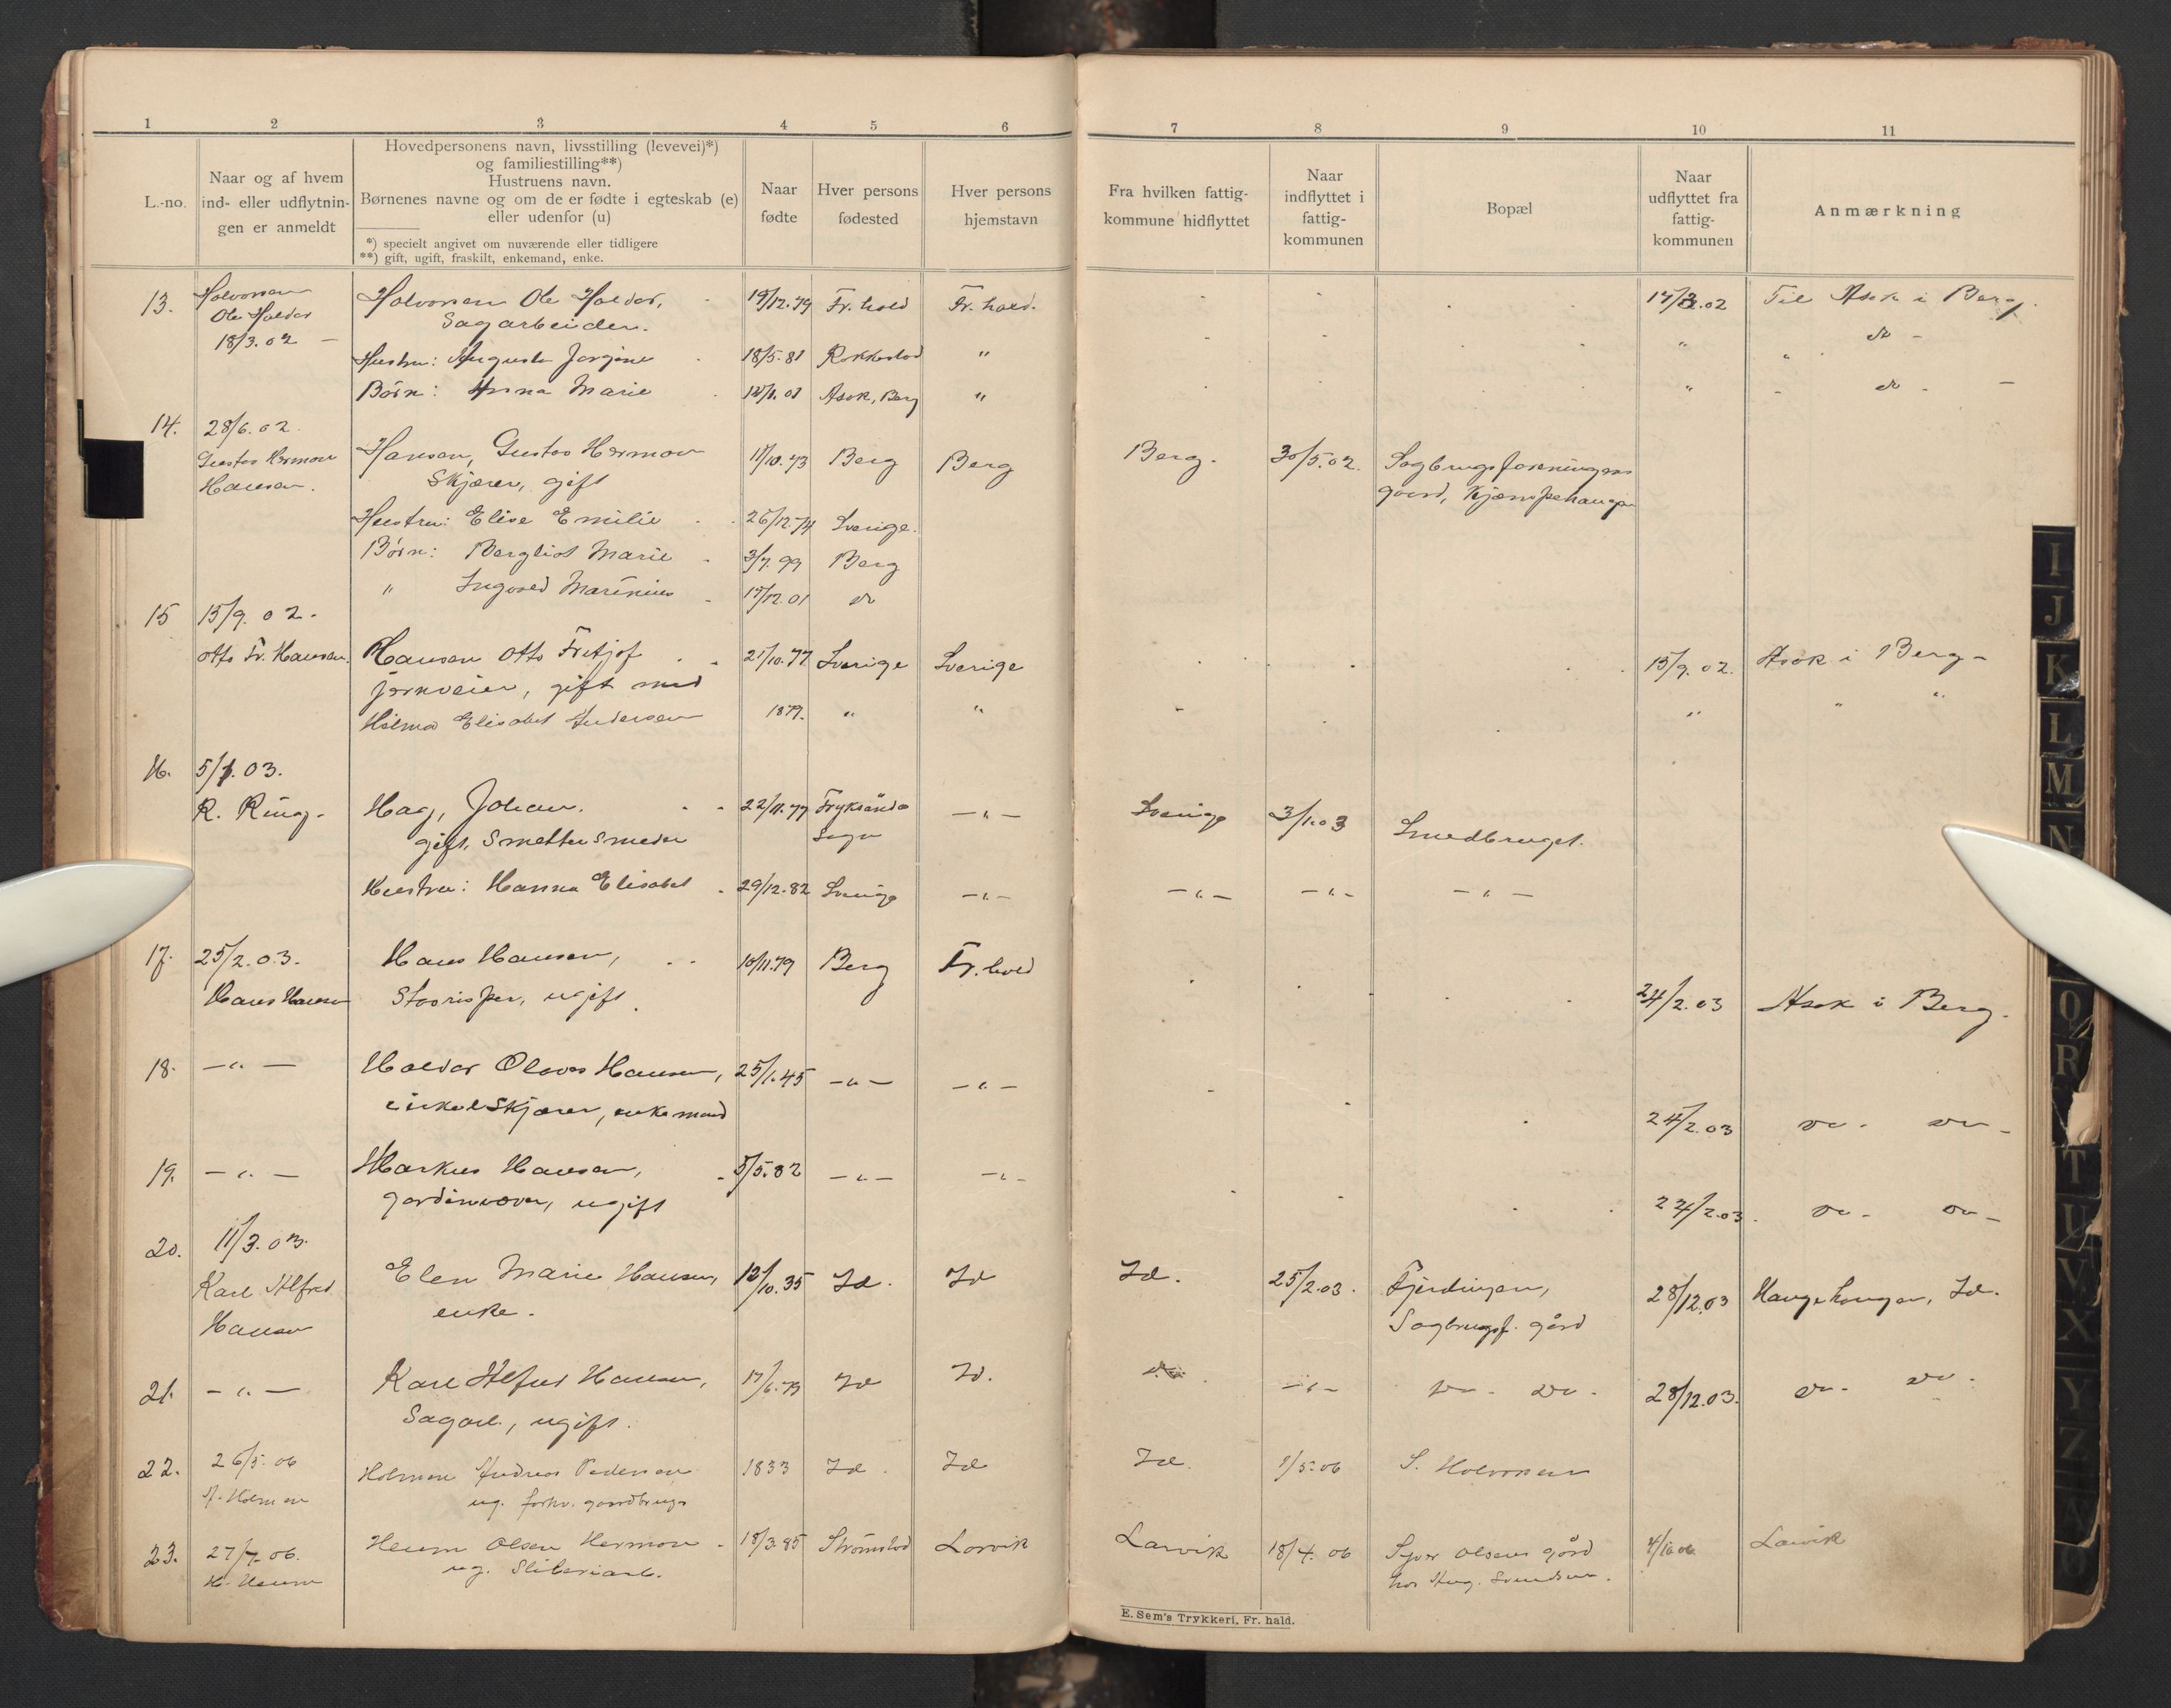 1 2 3 4 5 6 7 8 9 10 11
L.-no.
Naar og af hvem
ind- eller udflytnin-
gen er anmeldt
Hovedpersonens navn, livsstilling (levevei)*)
og familiestilling**)
Hustruens navn.
Børnenes navne og om de er fødte i egteskab (e)
eller udenfor (u)
*) specielt angivet om nuværende eller tidligere
**) gift, ugift, fraskilt, enkemand, enke.
Naar
fødte
Hver persons
fødested
Hver persons
hjemstavn
Fra hvilken fattig-
kommune hidflyttet
Naar
indflyttet i
fattig-
kommunen
Bopæl
Naar
udflyttet fra
fattig-
kommunen
Anmærkning
13. Halvorsen Halvorsen Ole Haldor, 19/12.79 Fr.hald Fr.hald. 17/3.02 Til Asak i Berg.
Ole Haldor Sagarbeider.
18/3.02 - Hustru: Augusta Jørgine 18/5.81 Rakkestad " " " do -
Børn: Anna Marie Asak, Berg " " - do -
14. 28/6.02.
Gustav Herman Hansen, Gustav Herman 17/10.73 Berg Berg Berg. 30/5.02. Sagbrugsforeningens
Hansen. Skjærer, gift gaard, Kjæmpehaugen
Hustru: Elise Emilie 26/12.74 Sverige.
Børn: Bergliot Marie 3/7.99 Berg
" Ingvald Marenius 17/12.01 do
15 15/9.02.
Otto Fr. Hansen. Hansen Otto Fritjof 21/10.77 Sverige Sverige 15/9.02. Asak i Berg -
gift med
Hilma Elisabet Andersen 1879. " " " " "
16. 5/1.03.
R. Ring. Hag, Johan. 22/11.77 Fryksände -"- Sverige 3/1.03 Smedbruget.
gift, Smettesmeder Sogn
Hustru: Hanna Elisabet 29/12.82 Sverige -"- -"- -"- -"-
17. 25/2.03. Hans Hansen, 10/11.79 Berg Fr.hald
Hans Hansen ugift. 24/2.03 Asak i Berg.
18. -"- Haldor Olaves Hansen, 25/1.45 -"- -"-
cirkelskjærer, enkemand 24/2.03 do - do -
19. -"- Markus Hansen, 5/5.82 -"- -"-
ugift 24/2.03. do - do -
20. 11/3.03.
Karl Alfred Elen Marie Hansen, 12/10.35 Id. Id Id. 25/2.03. Fjerdingen, 28/12.03 Haugehaugen, Id.
Hansen enke. Sagbrugsf. gård
21. -"- Karl Alfred Hansen, 17/6.79 Id Id. do. -"- do - do - 28/12.03. do - do -
Sagarb., ugift.
22. 26/5.06 Holman Andreas Pedersen 1833 Id. Id Id. 1/5.06 S. Halvorsen
A. Holman ug. forhv. gaardbruger
23. 27/7.06. Herman 18/3.85 Strömstad Larvik Larvik 18/4.06 Syver Olsens gård 4/10.06 Larvik
ug. Sliberiarb. hos Aug. Svendsen.
E. Sem's Trykkeri, Fr. hald.
I
J
K
L
M
N
O
R
T
U
V
X
Y
Z